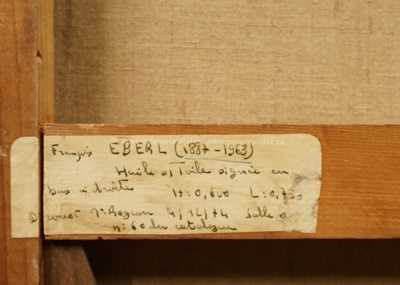 François EBERL (1887-1963)
Huile s/ Toile signée en
bas à droite H=0,600 L=0,730
Drouot Me Rogeon 4/12/74 Salle
n: 60 du catalogue